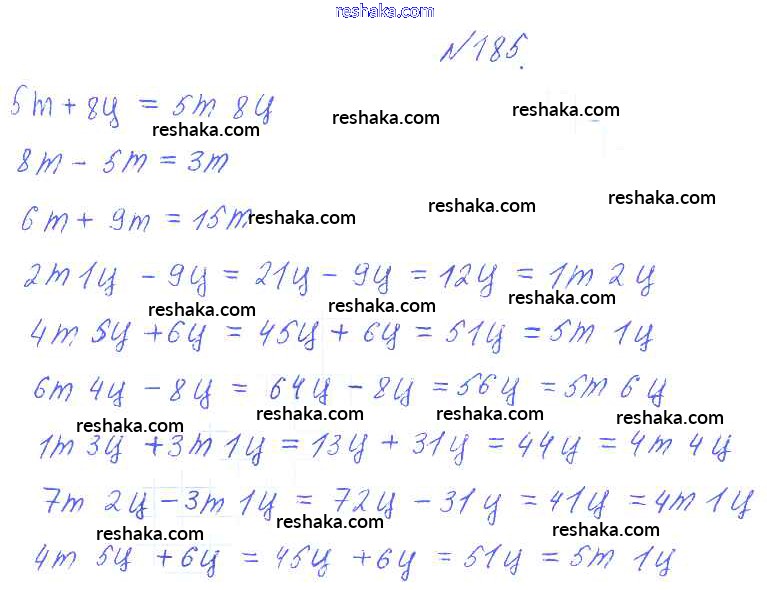 reshaka.com
№185.
5т + 8ц = 5т 8ц
reshaka.com reshaka.com reshaka.com
8т - 5т = 3т
6т + 9т = 15т
reshaka.com reshaka.com reshaka.com
2т 1ц - 9ц = 21ц - 9ц = 12ц = 1т 2ц
reshaka.com reshaka.com reshaka.com
4т 5ц + 6ц = 45ц + 6ц = 51ц = 5т 1ц
6т 4ц - 8ц = 64ц - 8ц = 56ц = 5т 6ц
reshaka.com reshaka.com reshaka.com reshaka.com
1т 3ц + 3т 1ц = 13ц + 31ц = 44ц = 4т 4ц
7т 2ц - 3т 1ц = 72ц - 31ц = 41ц = 4т 1ц
reshaka.com reshaka.com reshaka.com
4т 5ц + 6ц = 45ц + 6ц = 51ц = 5т 1ц